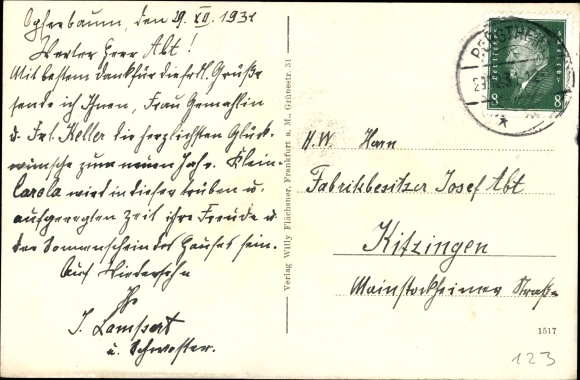 Opferbaum, den 29. XII. 1931
Werter Herr Abt!
Mit bestem Dank für die frdl. Grüße
sende ich Ihnen, Frau Gemahlin
u. Frl. Keller die herzlichsten Glück-
wünsche zum neuen Jahr. Klein-
Carola wird in dieser trüben u.
aufgeregten Zeit ihre Freude u.
der Sonnenschein des Hauses sein.
Auf Wiedersehn
Ihr
J. Lampert
u. Schwester.
Verlag Willy Flächsner, Frankfurt a. M., Grünestr. 31
8 8
H. W. Herrn
Fabrikbesitzer Josef Abt
Kitzingen
Mainstockheimer Straße
1517
123